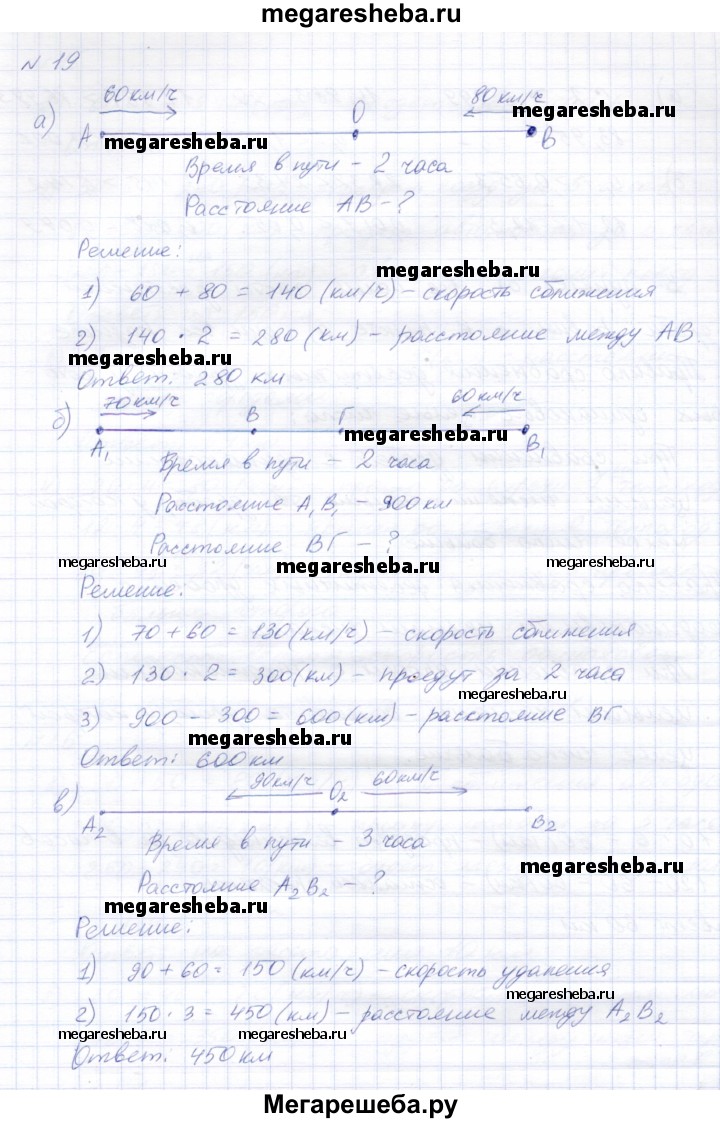 megaresheba.ru
№ 19
60 км/ч 80 км/ч
megaresheba.ru
а) А О В
megaresheba.ru
Время в пути – 2 часа
Расстояние АВ – ?
Решение:
megaresheba.ru
1) 60 + 80 = 140 (км/ч) – скорость сближения
2) 140 · 2 = 280 (км) – расстояние между АВ
megaresheba.ru
Ответ: 280 км
70 км/ч 60 км/ч
б) А₁ В Г В₁
megaresheba.ru
Время в пути – 2 часа
Расстояние А₁В₁ – 900 км
Расстояние ВГ – ?
megaresheba.ru megaresheba.ru megaresheba.ru
Решение:
1) 70 + 60 = 130 (км/ч) – скорость сближения
2) 130 · 2 = 300 (км) – проедут за 2 часа
megaresheba.ru
3) 900 – 300 = 600 (км) – расстояние ВГ
megaresheba.ru
Ответ: 600 км
90 км/ч О₂ 60 км/ч
в) А₂ В₂
Время в пути – 3 часа
megaresheba.ru
Расстояние А₂В₂ – ?
megaresheba.ru
Решение:
1) 90 + 60 = 150 (км/ч) – скорость удаления
megaresheba.ru
2) 150 · 3 = 450 (км) – расстояние между А₂В₂
megaresheba.ru megaresheba.ru megaresheba.ru
Ответ: 450 км
Мегарешеба.ру